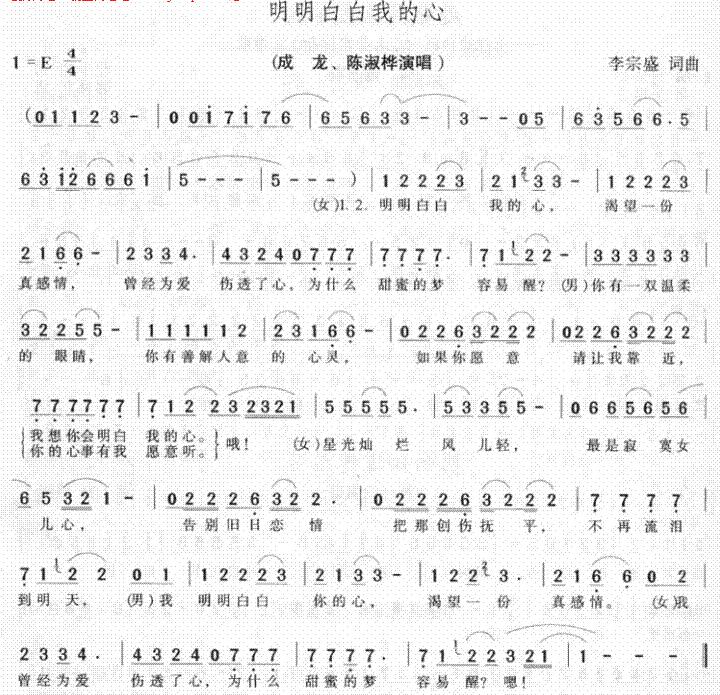 明明白白我的心
1=E 4/4 (成 龙、陈淑桦演唱) 李宗盛 词曲
(0 1 1 2 3 - | 0 0 1 7 1 7 6 | 6 5 6 3 3 - | 3 - - 0 5 | 6 3 5 6 6 . 5 |
6 3 1 2 6 6 6 1 | 5 - - - | 5 - - - ) | 1 2 2 2 2 3 | 2 1 2 3 3 - | 1 2 2 2 2 3 |
(女)1. 2. 明明白白 我的心, 渴望一份
2 1 6 6 - | 2 3 3 4 . | 4 3 2 4 0 7 7 7 | 7 7 7 7 . | 7 1 1 2 2 - | 3 3 3 3 3 3 |
真感情, 曾经为爱 伤透了心,为什么 甜蜜的梦 容易醒? (男)你有一双温柔
3 2 2 5 5 - | 1 1 1 1 1 2 | 2 3 1 6 6 - | 0 2 2 6 3 2 2 2 | 0 2 2 6 3 2 2 2 |
的 眼睛, 你有善解人意 的 心灵, 如果你愿 意 请让我靠 近,
7 7 7 7 7 7 | 7 1 2 2 3 2 3 2 1 | 5 5 5 5 5 . | 5 3 3 5 5 - | 0 6 6 5 6 5 6 |
{我想你会明白 我的心。} 哦! (女)星光灿 烂 风 儿轻, 最是寂 寞女
{你的心事有我 愿意听。}
6 5 3 2 1 - | 0 2 2 2 6 3 2 2 . | 0 2 2 2 6 3 2 2 2 | 7 7 7 7 |
儿心, 告别旧日恋 情 把那创伤抚 平, 不再流泪
7 1 1 2 2 0 1 | 1 2 2 2 2 3 | 2 1 3 3 - | 1 2 2 2 3 . | 2 1 6 6 0 2 |
到明 天, (男)我 明明白白 你的心, 渴望一 份 真感情。 (女)我
2 3 3 4 . | 4 3 2 4 0 7 7 7 | 7 7 7 7 . | 7 1 1 2 2 3 2 1 | 1 - - - ‖
曾经为爱 伤透了心,为什么 甜蜜的梦 容易 醒? 嗯!